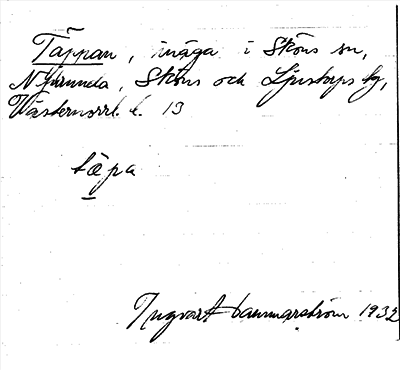 Täppan, inäga i Sköns sn,
Njurunda, Sköns och Ljustorps tg,
Västernorrl. l. 13
täpa
Ingvart Hammarström 1932